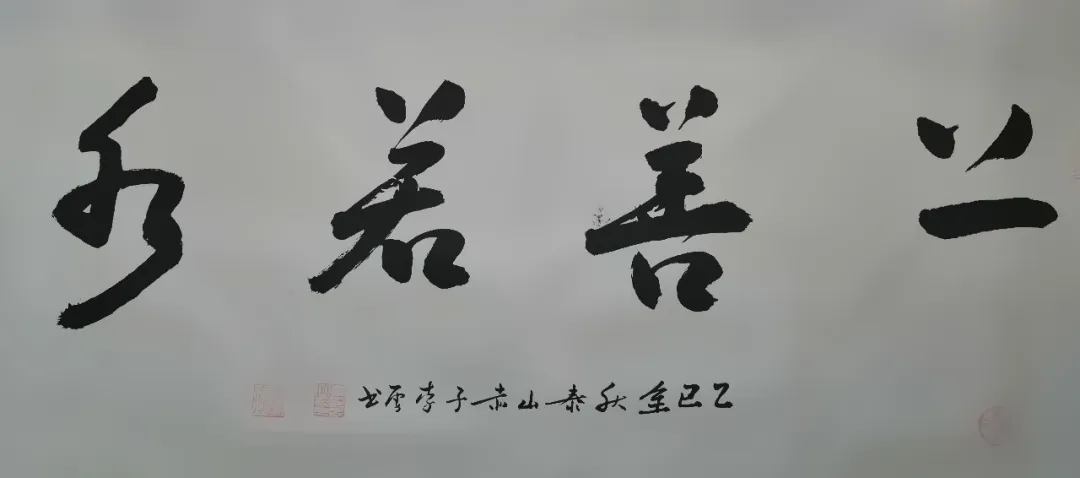 上善若水
乙巳金秋泰山赤子李雲书